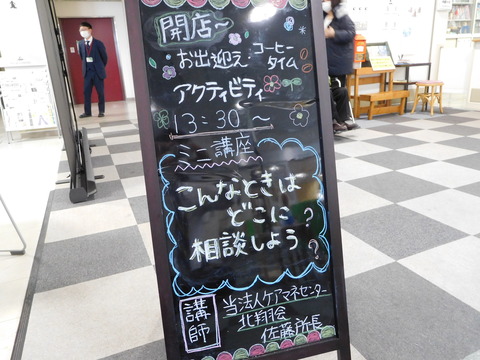 開店~
お出迎え コーヒー
タイム
アクティビティ
13:30~
ミニ講座
こんなときは
どこに
相談しよう??
講師
当法人ケアマネセンター
北翔会
佐藤所長